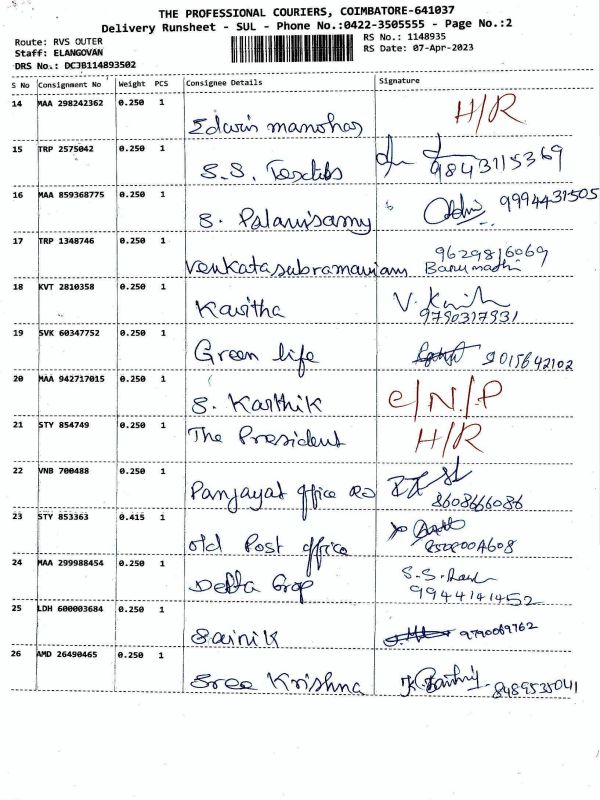 THE PROFESSIONAL COURIERS, COIMBATORE-641037
Delivery Runsheet - SUL - Phone No.:0422-3505555 - Page No.:2
Route: RVS OUTER
RS No.: 1148935
Staff: ELANGOVAN
RS Date: 07-Apr-2023
DRS No.: DCJB114893502
S No Consignment No Weight PCS Consignee Details Signature
14 MAA 298242362 0.250 1
Edwin manohar H/R
15 TRP 2575042 0.250 1
S.S. Textiles 9843115369
16 MAA 859368775 0.250 1
S. Palanisamy 9994431505
17 TRP 1348746 0.250 1
9629816069
Venkatasubramaniam Banumathi
18 KVT 2810358 0.250 1
Kavitha V.
9790317931
19 SVK 60347752 0.250 1
Green life 9015642102
20 MAA 942717015 0.250 1
S. Karthik C/N/P
21 STY 854749 0.250 1
The President H/R
22 VNB 700488 0.250 1
Panjayat office
8608666086
23 STY 853363 0.415 1
old Post office
24 MAA 299988454 0.250 1
Delta Grop S.S.
9944141452
25 LDH 600003684 0.250 1
Sainik 9790069762
26 AMD 26490465 0.250 1
Sree Krishna 8489535041